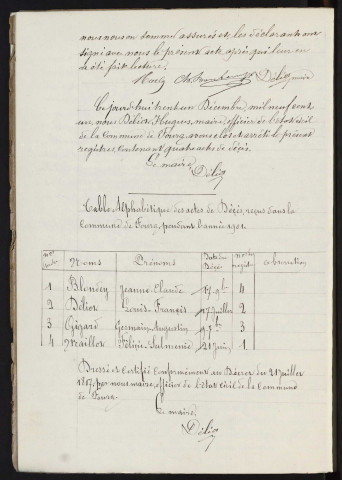 nous nous en sommes assurés et, les déclarants ont
signé avec nous le présent acte après que lecture en
a été fait lecture.
Délioz maire
Ce jourd'hui trent un Décembre mil neuf cent
un, nous Délioz Hugens, maire, officier de l'état civil
de la Commune de Fourg, avons clos et arrêté le présent
registre, contenant quatre actes de décès.
Le maire
Délioz
Table Alphabétique des actes de Décès, reçus dans la
Commune de Fourg, pendant l'année 1901.
Noms Prénoms Date du Décès observation
1 Blondey Jeanne Claude 17 9bre 4
2 Délioz Louis François 17 Juillet 2
3 Gigard Germain Augustin 3
4 Maillot Félicie Salmenie 21 Juin 1
Dressé et Certifié Conformément au Décret du 21 juillet
1807, par nous maire, officier de l'état civil de la Commune
de Fourg.
Le maire,
Délioz